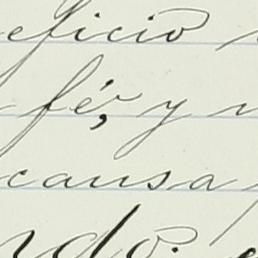 eficio
fé, y
causa
do.